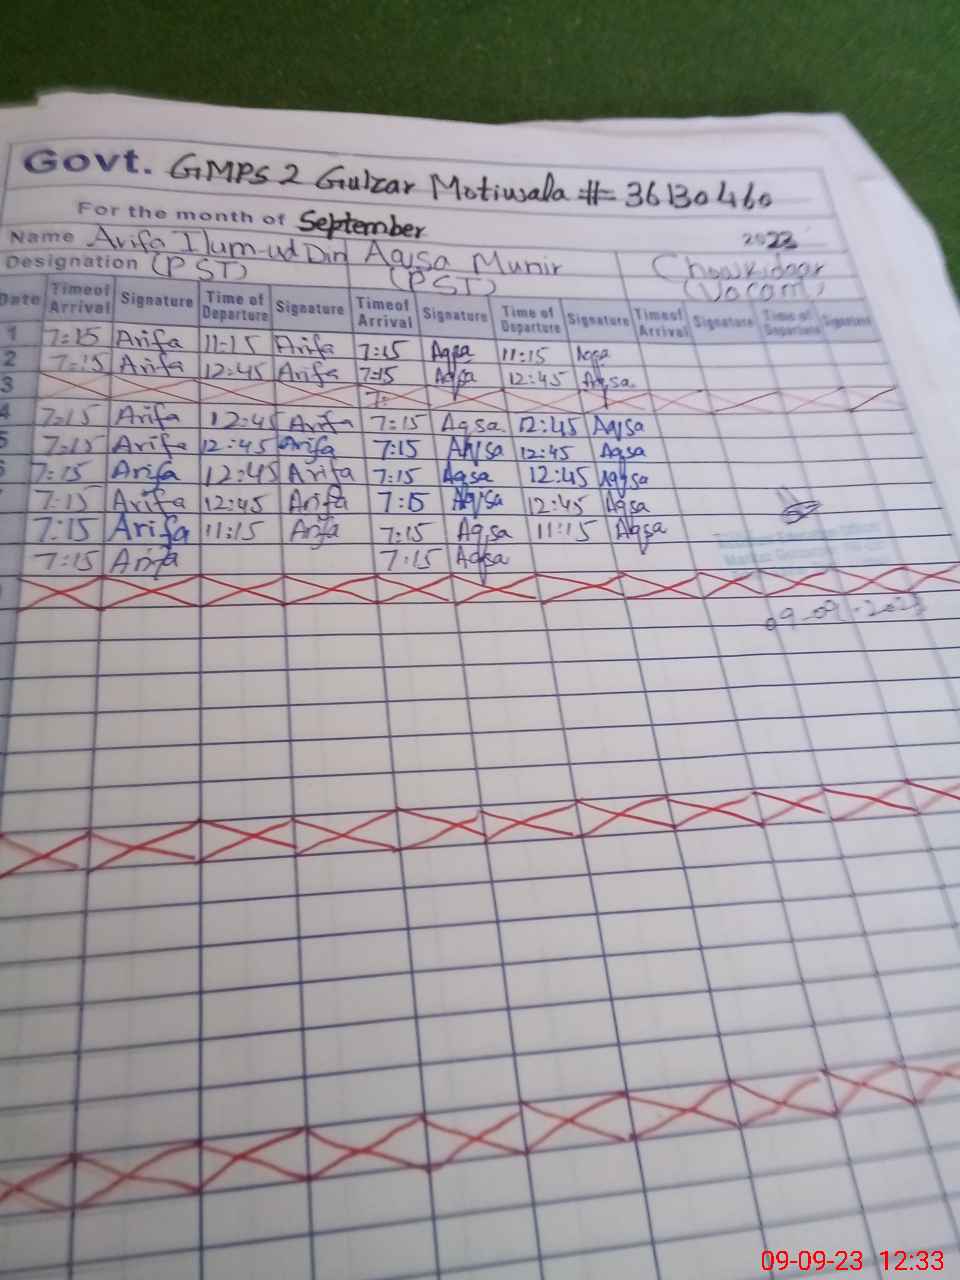 Govt. GMPS 2 Gulzar Motiwala # 36130460
For the month of September 2023
Name Arifa Ilum-ud Din Aqsa Munir Chowkidaar
Designation (PST) (PST)
Date Time of Arrival Signature Time of Departure Signature Time of Arrival Signature Time of Departure Signature Time of Arrival Signature Time of Departure Signature
1 7:15 Arifa 11:15 Arifa 7:15 Aqsa 11:15 Aqsa
2 7:15 Arifa 12:45 Arifa 7:15 Aqsa 12:45 Aqsa
3 7:
4 7:15 Arifa 12:45 Arifa 7:15 Aqsa 12:45 Aqsa
5 7:15 Arifa 12:45 Arifa 7:15 Aqsa 12:45 Aqsa
7:15 Arifa 12:45 Arifa 7:15 Aqsa 12:45 Aqsa
7:15 Arifa 12:45 Arifa 7:15 Aqsa 12:45 Aqsa
7:15 Arifa 11:15 Arifa 7:15 Aqsa 11:15 Aqsa
7:15 Arifa 7:15 Aqsa
09-09-2023
09-09-23 12:33